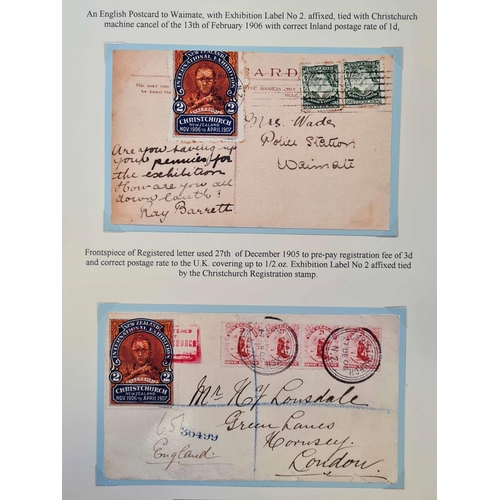 An English Postcard to Waimate, with Exhibition Label No 2. affixed, tied with Christchurch
machine cancel of the 13th of February 1906 with correct Inland postage rate of 1d,
CARD
NEW ZEALAND
INTERNATIONAL EXHIBITION
2 2
CHRISTCHURCH
NEW ZEALAND
NOV 1906 TO APRIL 1907
Mrs. Wade
Police Station
Waimate
Are you saving up
your pennies for
the exhibition
How are you all
down South?
Ray Barrett
Frontspiece of Registered letter used 27th of December 1905 to pre-pay registration fee of 3d
and correct postage rate to the U.K. covering up to 1/2.oz. Exhibition Label No 2 affixed tied
by the Christchurch Registration stamp.
NEW ZEALAND
INTERNATIONAL EXHIBITION
2 2
CHRISTCHURCH
NEW ZEALAND
NOV 1906 TO APRIL 1907
Mr H J Lonsdale
Green Lanes
Hornsey
London.
65
30499
England